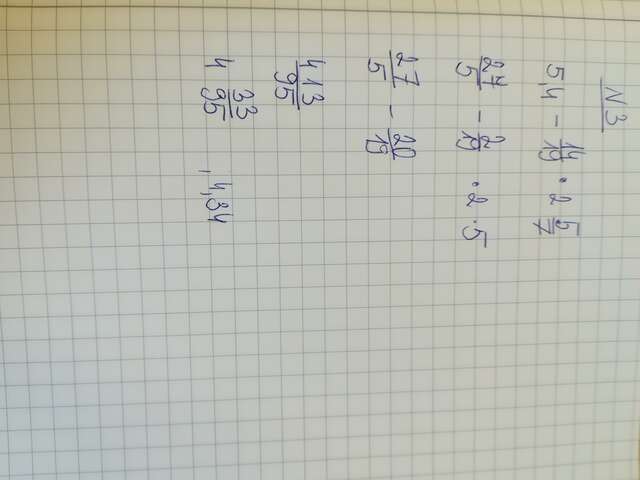 N 3
5,4 - 14/19 · 2 5/7
27/5 - 2/19 · 2 · 5
27/5 - 20/19
413/95
4 33/95 , 4,34